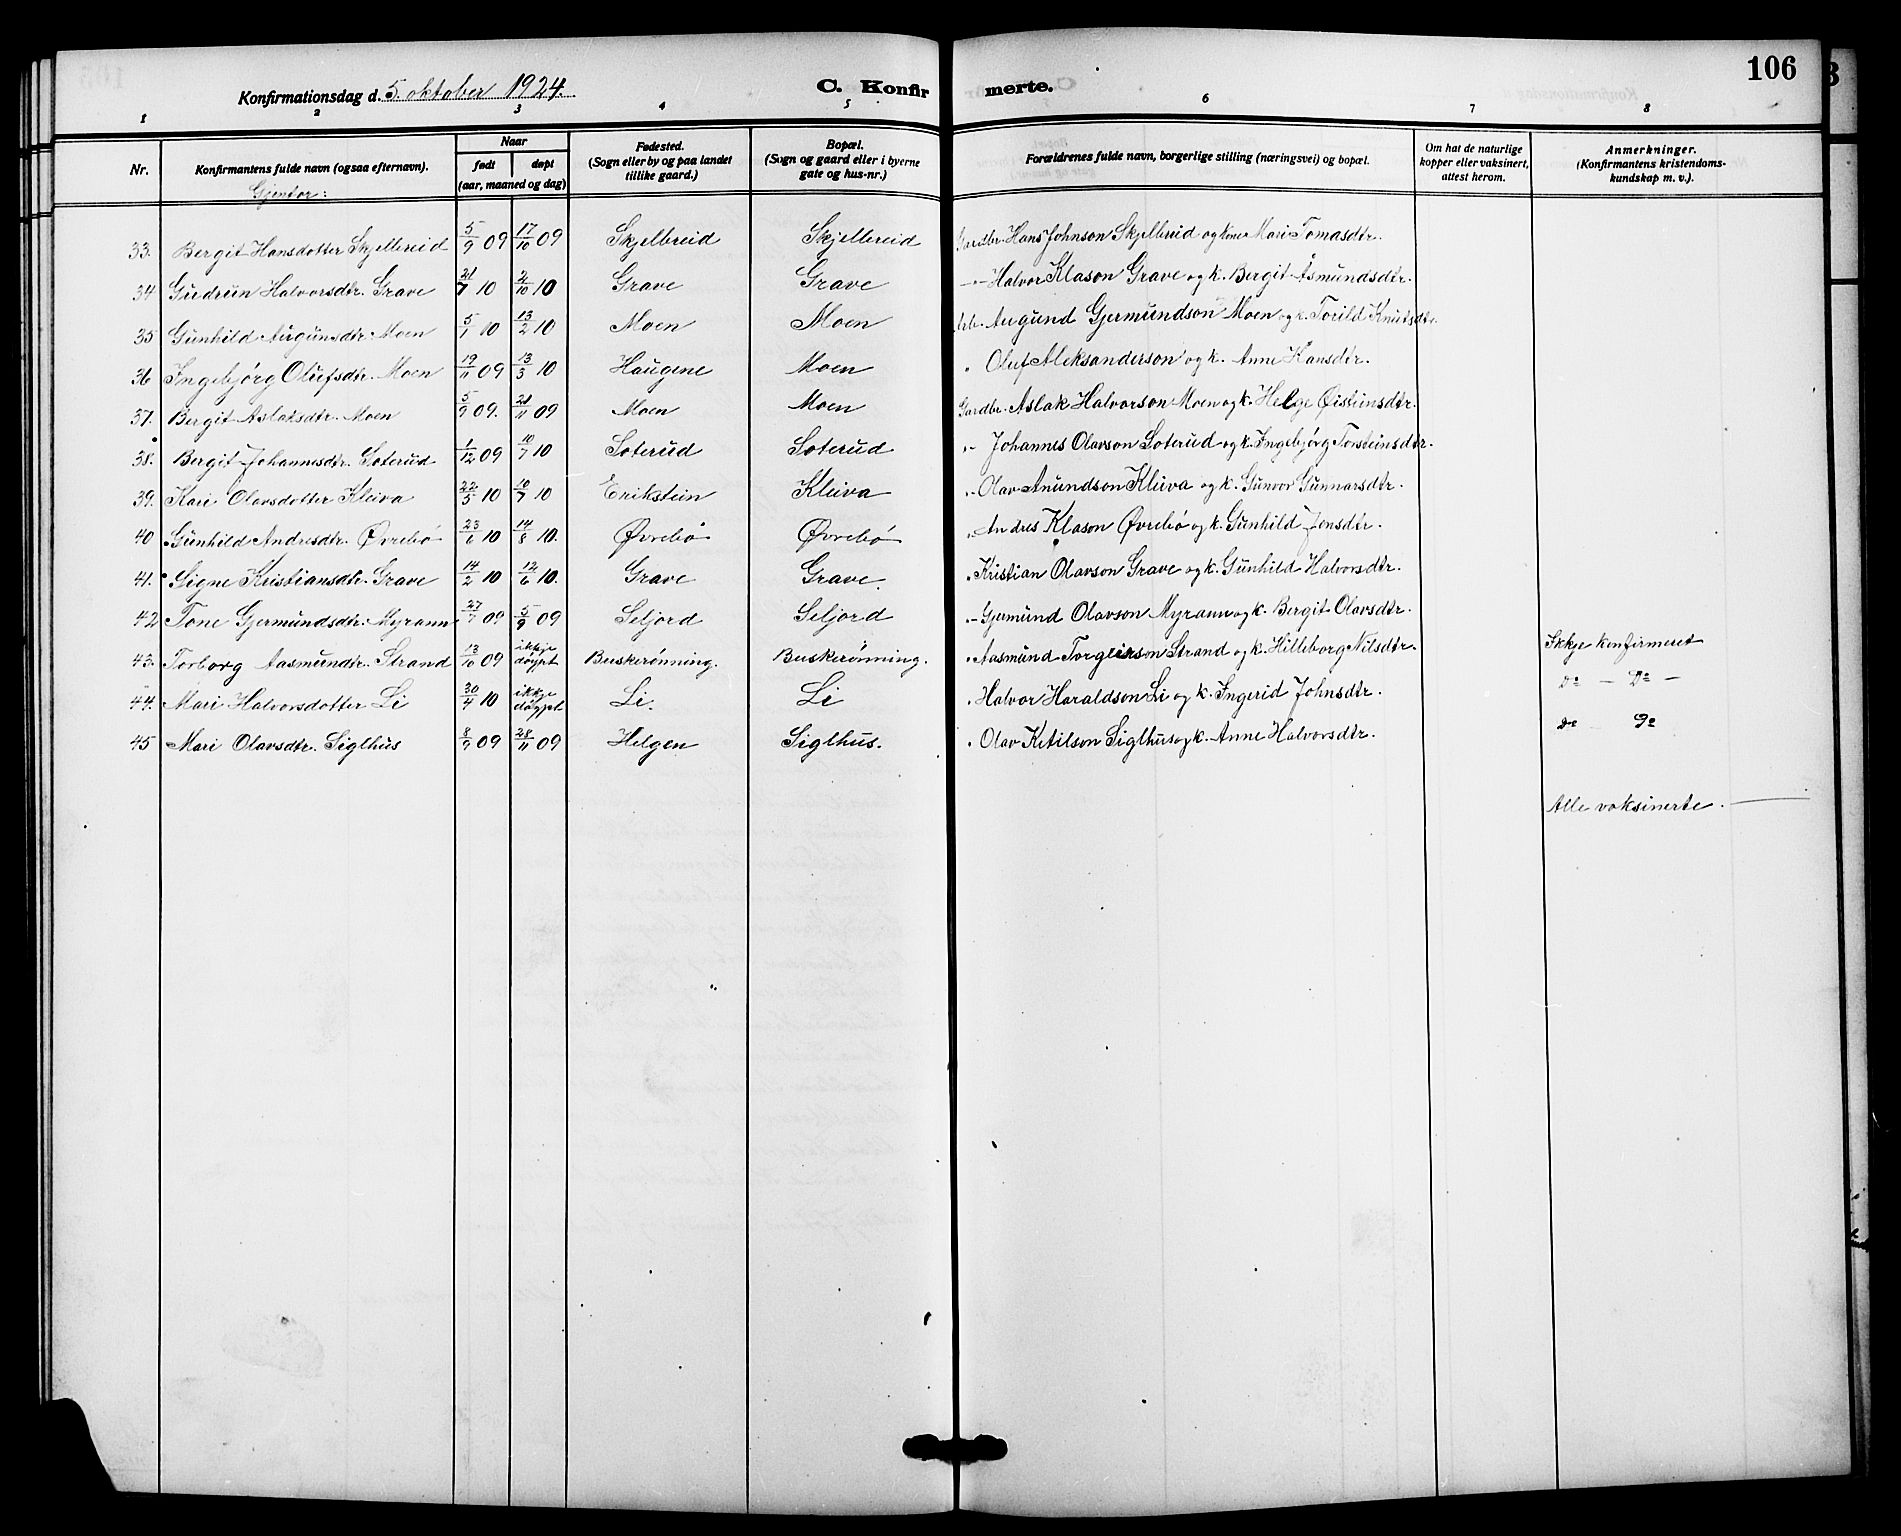 106
Konfirmationsdag d. 5. oktober 1924.
C. Konfirmerte.
1 2 3 4 5 6 7 8
Nr. Konfirmantens fulde navn (ogsaa efternavn). Naar født døpt (aar, maaned og dag) Fødested. (Sogn eller by og paa landet tillike gaard.) Bopæl. (Sogn og gaard eller i byerne gate og hus-nr.) Forældrenes fulde navn, borgerlige stilling (næringsvei) og bopæl. Om hat de naturlige kopper eller vaksinert, attest herom. Anmerkninger. (Konfirmantens kristendoms-kundskap m. v.).
Gjentor:
33. Bergit Hansdotter Skjelbreid 5/9 09 17/10 09 Skjelbreid Skjelbreid Gardbr. Hans Johnson Skjelbreid og kone Mari Tomasdtr.
34 Gudrun Halvorsdtr. Grave 21/7 10 2/10 10 Grave Grave -"- Halvor Klason Grave og k. Bergit Åsmundsdtr.
35 Gunhild Augunsdtr. Moen 5/1 10 13/2 10 Moen Moen Arb. Augund Gjermundson Moen og k. Torild Knutsdtr.
36 Ingebjørg Olufsdtr. Moen 19/11 09 13/3 10 Haugene Moen " Oluf Aleksanderson og k. Anne Hansdtr.
37. Bergit Aslaksdtr. Moen 5/9 09. 21/11 09 Moen Moen Gardbr. Aslak Halvorson Moen og k. Helge Øisteinsdtr.
38. Bergit Johannesdtr. Soterud 1/12 09 10/7 10 Soterud Soterud "- Johannes Olavson Soterud og k. Ingebjørg Torsteinsdtr.
39. Kari Olavsdotter Kleiva 22/5 10 10/7 10 Erikstein Kleiva "- Olav Anundson Kleiva og k. Gunvor Gunnarsdtr.
40 Gunhild Andresdtr. Øvrebø 23/6 10 14/8 10. Øvrebø Øvrebø " Andres Klason Øvrebø og k. Gunhild Jensdtr.
41. Signe Kristiansdtr. Grave 14/2 10 12/6 10. Grave Grave. " Kristian Olavson Grave og k. Gunhild Halvorsdtr.
42 Tone Gjermundsdtr. Myrann 27/7 09 5/9 09 Seljord Seljord "- Gjermund Olavson Myrann og k. Bergit Olavsdtr.
43. Torborg Aasmundtr. Strand 13/10 09 ikkje døypt Buskerønning. Buskerønning. " Aasmund Torgeirson Strand og k. Hilleborg Nilsdtr. Ikkje konfirmeret
44. Mari Halvorsdotter Li 30/4 10 ikkje døypt Li. Li " Halvor Haraldson Li og k. Ingerid Johnsdtr. Do - Do -
45 Mari Olavsdtr. Siglhus 8/9 09 28/11 09 Helgen Siglhus. " Olav Ketilson Siglhus og k. Anne Halvorsdtr. Do Do
Alle vaksinerte.